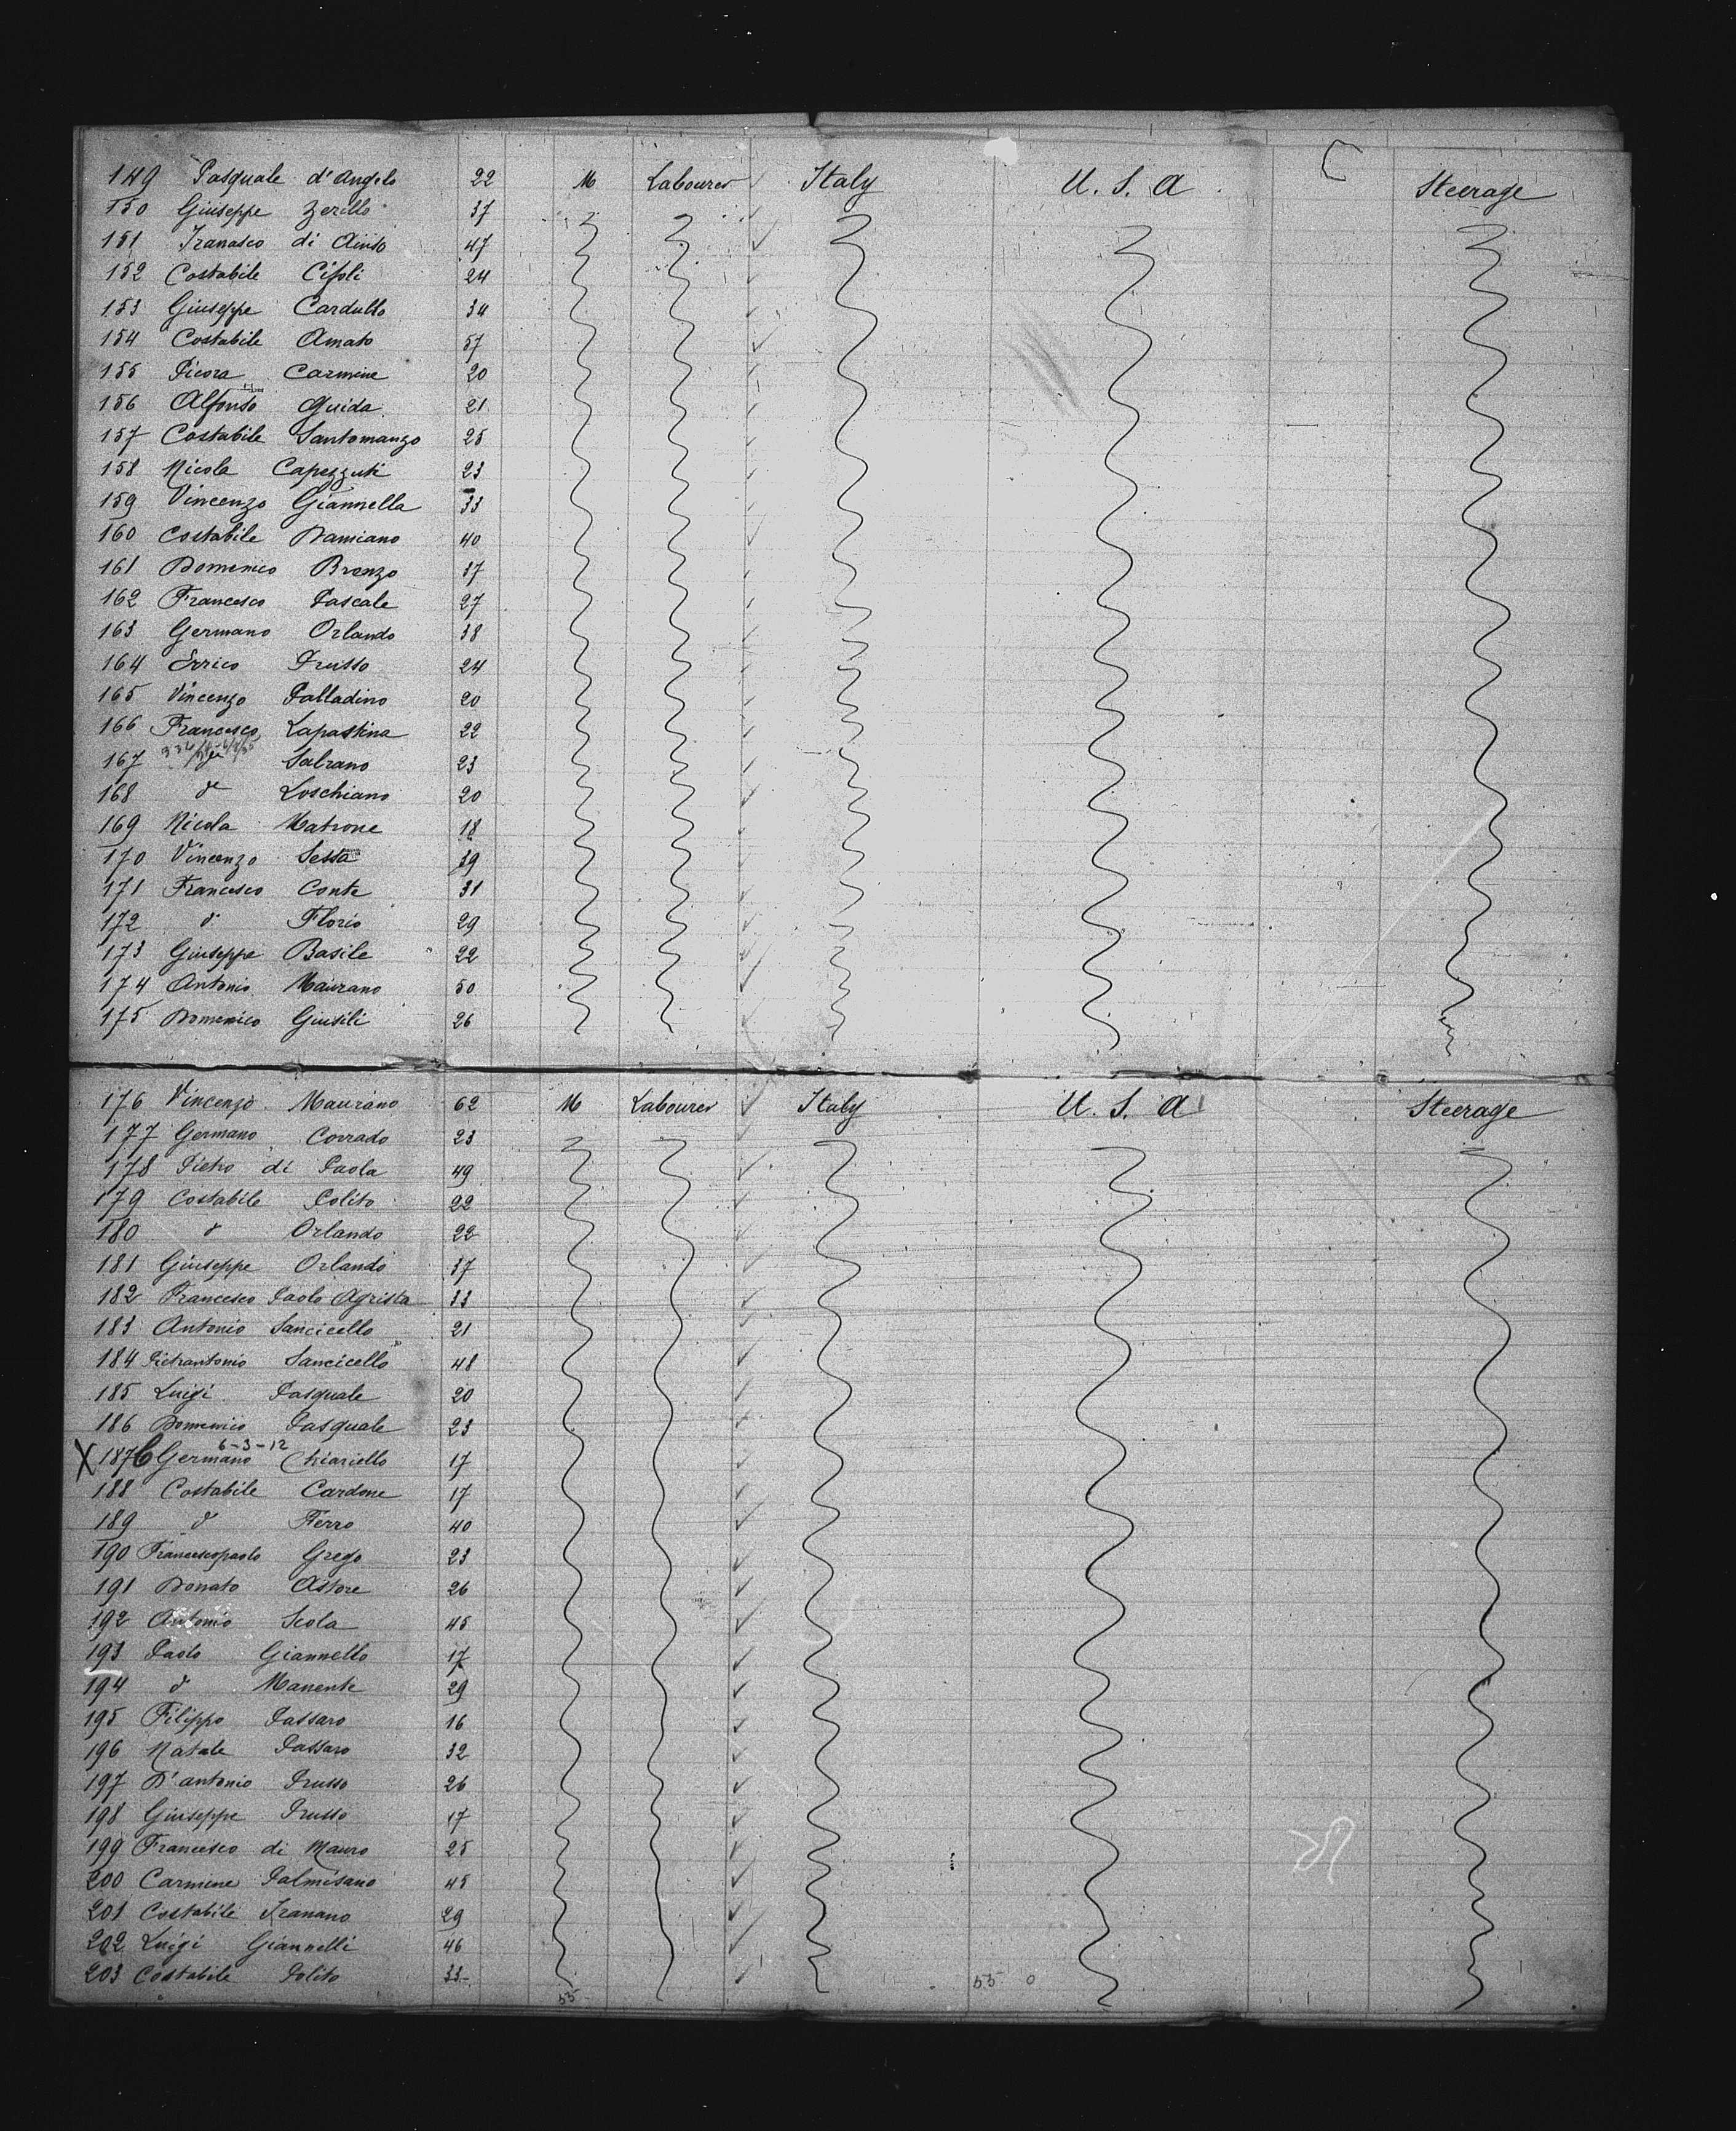 149 Pasquale d'Angelo 22 M Labourer Italy U. S. A Steerage
150 Giuseppe Zerillo 37
151 di 47
152 Costabile Cifoli 24
153 Giuseppe Cardullo 34
154 Costabile Amato 57
155 Picora Carmine 20
156 Alfonso Guida 21
157 Costabile Santomanzo 25
158 Nicola Capezzuti 23
159 Vincenzo Giannella 33
160 Costabile Damiano 40
161 Domenico Bronzo 37
162 Francesco Pascale 27
163 Germano Orlando 38
164 Errico Prusso 24
165 Vincenzo Palladino 20
166 Francesco Lapastina 22
167 Salzano 23
168 d° Loschiano 20
169 Nicola Matrone 18
170 Vincenzo Sessa 39
171 Francesco Conte 31
172 d° Florio 29
173 Giuseppe Basile 22
174 Antonio Maurano 50
175 Domenico Giusili 26
176 Vincenzo Maurano 62 M Labourer Italy U. S. A Steerage
177 Germano Corrado 23
178 Pietro di Paola 49
179 Costabile Polito 22
180 d° Orlando 22
181 Giuseppe Orlando 37
182 Francesco Paolo Agrista 33
183 Antonio Sancicello 21
184 Pietrantonio Sancicello 48
185 Luigi Pasquale 20
186 Domenico Pasquale 23
6-3-12
X 187 C Germano Chiariello 17
188 Costabile Cardone 17
189 d° Fierro 40
190 Francescopaolo Grego 23
191 Donato Astore 26
192 Antonio Scola 45
193 Paolo Giannello 17
194 d° Manente 29
195 Filippo Passaro 16
196 Natale Passaro 32
197 D'antonio Prusso 26
198 Giuseppe Prusso 17
199 Francesco di Mauro 25
200 Carmine Palmisano 45
201 Costabile 29
202 Luigi Giannelli 46
203 Costabile Polito 33
55 55 0